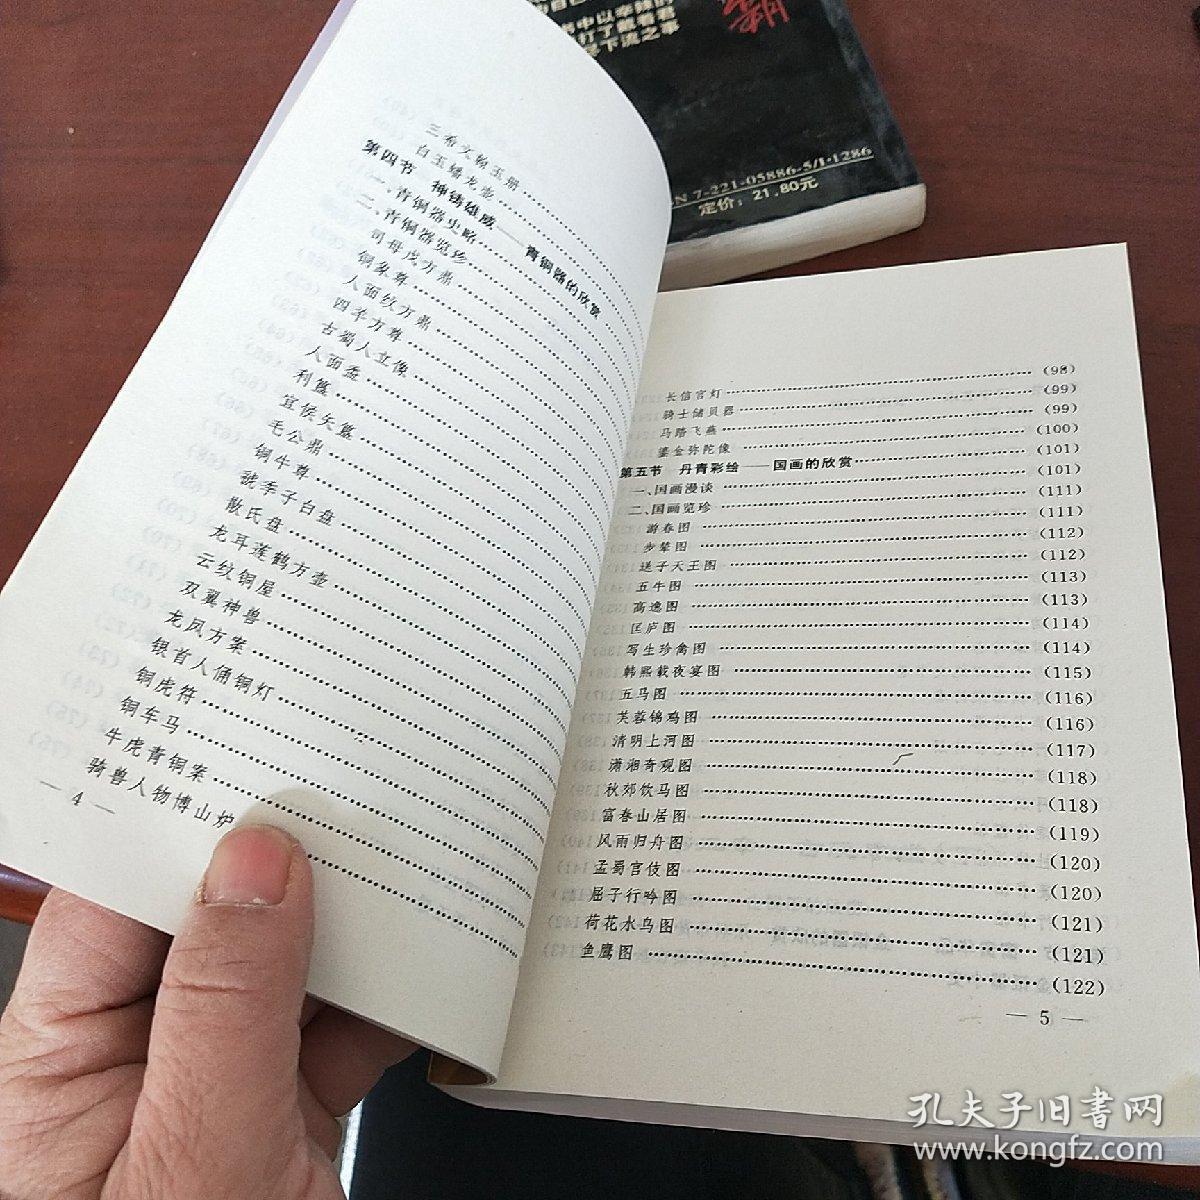 的自己
书中以辛辣的
打了戴着君
下流之事
N 7-221-05886-5/I·1286
定价：21.80元
三希文翰玉册
白玉蟠龙瓷
第四节 神铸雄威——青铜器的欣赏
一、青铜器史略
二、青铜器览珍
司母戊方鼎
铜象尊
人面纹方鼎
四羊方尊
古蜀人立像
人面盉
利簋
宜侯夨簋
毛公鼎
铜牛尊
虢季子白盘
散氏盘
龙耳莲鹤方壶
云纹铜屋
双翼神兽
龙凤方案
银首人俑铜灯
铜虎符
铜车马
牛虎青铜案
骑兽人物博山炉
— 4 —
长信宫灯 (98)
骑士储贝器 (99)
马踏飞燕 (99)
鎏金弥陀像 (100)
第五节 丹青彩绘——国画的欣赏 (101)
一、国画漫谈 (101)
二、国画览珍 (111)
游春图 (111)
步辇图 (112)
送子天王图 (112)
五牛图 (113)
高逸图 (113)
匡庐图 (114)
写生珍禽图 (114)
韩熙载夜宴图 (115)
五马图 (116)
芙蓉锦鸡图 (116)
清明上河图 (117)
潇湘奇观图 (118)
秋郊饮马图 (118)
富春山居图 (119)
风雨归舟图 (120)
孟蜀宫伎图 (120)
屈子行吟图 (121)
荷花水鸟图 (121)
鱼鹰图 (122)
— 5 —
孔夫子旧书网
www.kongfz.com